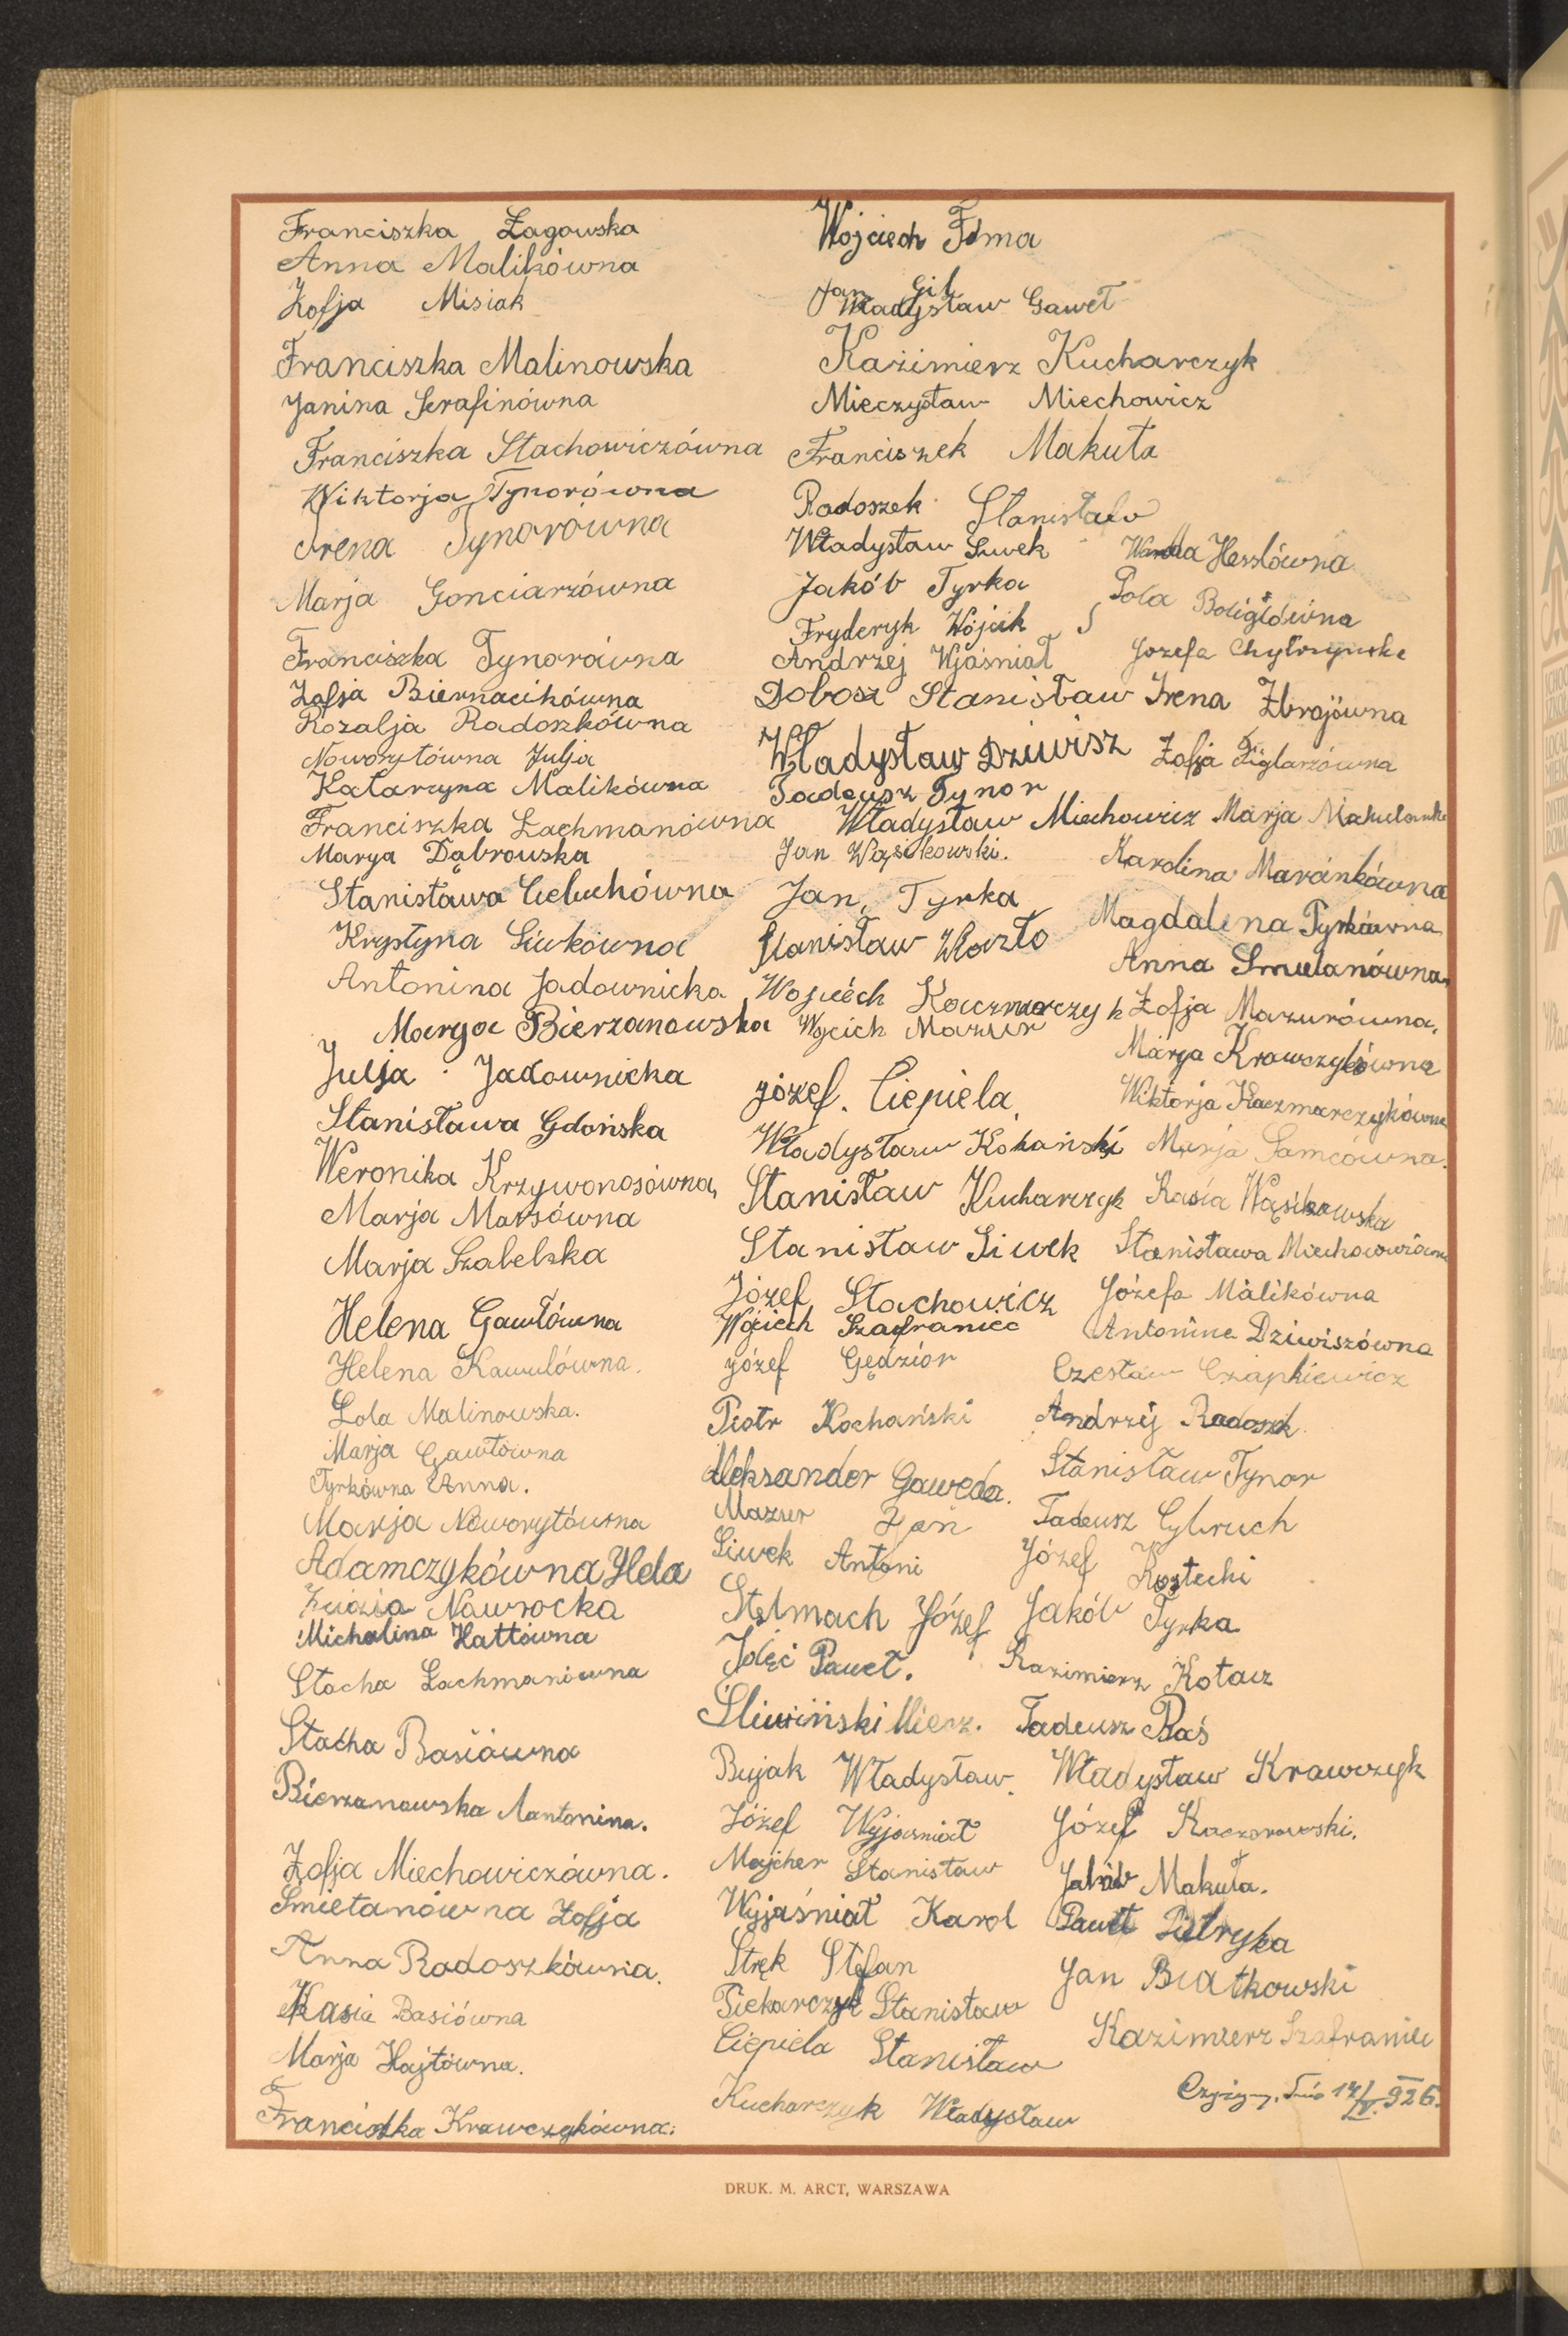 Franciszka Łagowska
Anna Malikówna
Zofja Misiak
Franciszka Malinowska
Janina Serafinówna
Franciszka Stachowiczówna
Wiktorja Tynorówna
Irena Tynorówna
Marja Gonciarzówna
Franciszka Tynorówna
Zofja Biernacikówna
Rozalja Radoszkówna
Noworytówna Julja
Katarzyna Malikówna
Franciszka Lachmanówna
Marya Dąbrowska
Stanisława Cieluchówna
Krystyna Siwkówna
Antonina Jadownicka
Marya Bierzanowska
Julja Jadownicka
Stanisława Gdońska
Weronika Krzywonosówna,
Marja Marsówna
Marja Szabelska
Helena Gawłówna
Helena Kawulówna.
Lola Malinowska.
Marja Gawłówna
Tyrkówna Anna.
Marja Noworytówna
Adamczykówna Hela
Zuzia Nawrocka
Michalina Hattówna
Stacha Lachmanówna
Stacha Basiówna
Bierzanowska Aantonina.
Zofja Miechowiczówna.
Smietanówna Zofja
Anna Radoszkówna.
Kasia Basiówna
Marja Hajtówna.
Franciszka Krawczykówna.
Wojciech Fdma
Jan Gil
Władysław Gaweł
Kaźimierz Kucharczyk
Mieczysław Miechowicz
Franciszek Makuła
Radoszek Stanisław
Władysław Siwek
Jakób Tyrka
Fryderyk Wójcik
Andrzej Wjaśniał
Dobosz Stanisław
Władysław Dziwisz
Tadeusz Tynor
Władysław Miechowicz
Jan Wąsikowski.
Jan Tyrka
Stanisław Warzło
Wojciéch Kaczmarczyk
Wojcich Mazur
józef. Ciepiela,
Władysław Kohański
Stanisław Kucharczyk
Stanisław Siwek
Józef Stachowicz
Wojciech Szafraniec
józef Gędzior
Piotr Kochański
Aleksander Gawęda.
Mazur Jan
Siwek Antoni
Stelmach Józef
Idęć Paweł.
Śliwiński Mierz.
Bujak Władysław
Józef Wyjaśniał
Majcher Stanisław
Wyjaśniał Karol
Stręk Stefan
Piekarczyk Stanisław
Ciepiela Stanisław
Kucharczyk Władysław
Wanda Hesslówna
Pola Boligłówna
Józefa
Irena Zbrojówna
Zofja Figlarzówna
Marja
Karolina Maránkówna
Magdalena Tyrkówna
Anna Smulanówna
Zofja Mazurówna.
Marja Krawczykówna
Wiktorja Kaczmarczykówna
Marja Samcówna.
Kasia Wąsikowska
Stanisława Miechowiczówna
Józefa Malikówna
Antonina Dziwiszówna
Czesław Czapkiewicz
Andrzej Radoszek
Stanisław Tynor
Tadeusz Cybruch
Józef Kostecki
Jakób Tyrka
Kazimierz Kołacz
Tadeusz Ptaś
Władysław Krawczyk
Józef Kaczorowski.
Jakób Makuła.
Paweł Pietryka
Jan Białkowski
Kazimierz Szafraniec
Czyżyny, dnia 14/V. 926.
DRUK. M. ARCT, WARSZAWA